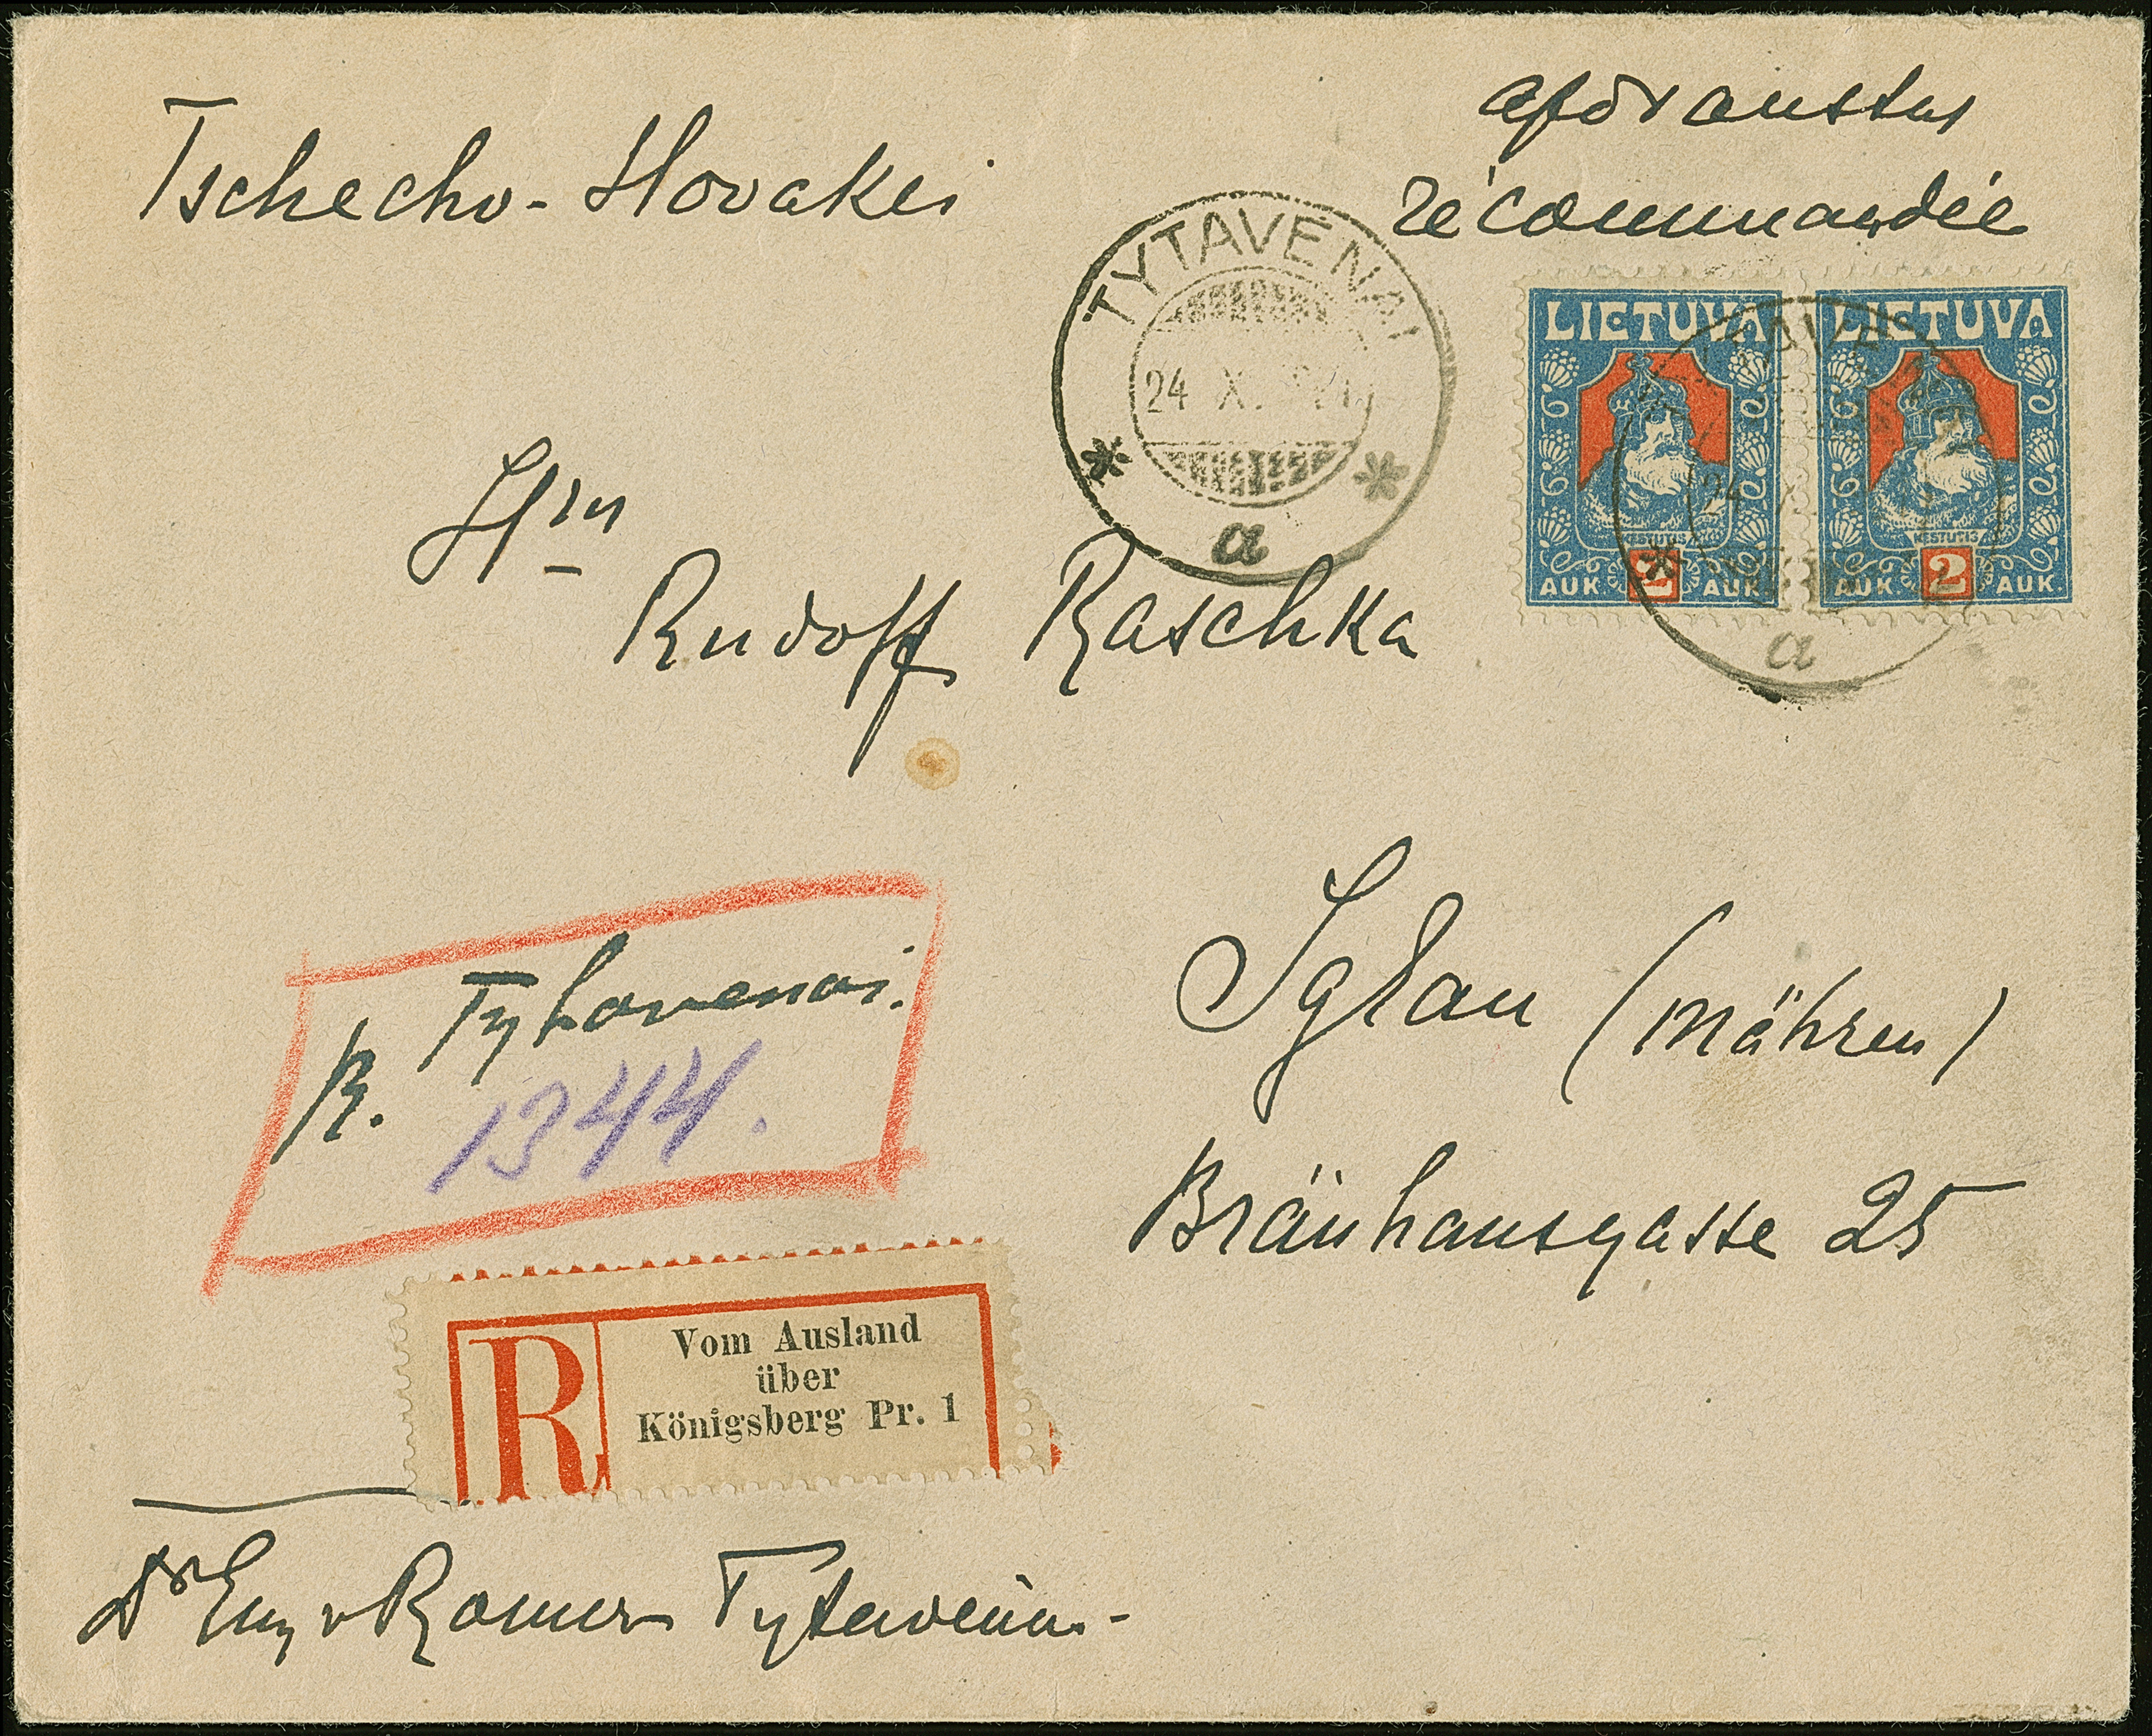 Tschecho-Slovakei
apdraustas
récommandée
TYTAVENAI
24 X
a
LIETUVA LIETUVA
KESTUTIS KESTUTIS
2 2
AUK AUK AUK AUK
24 X
a
Hrn
Rudolf Raschka
Iglau (Mähren)
Bräuhausgasse 25
R. Tytavenai.
1344.
R
Vom Ausland
über
Königsberg Pr. 1
Dr Eug v Romer Tytavenai